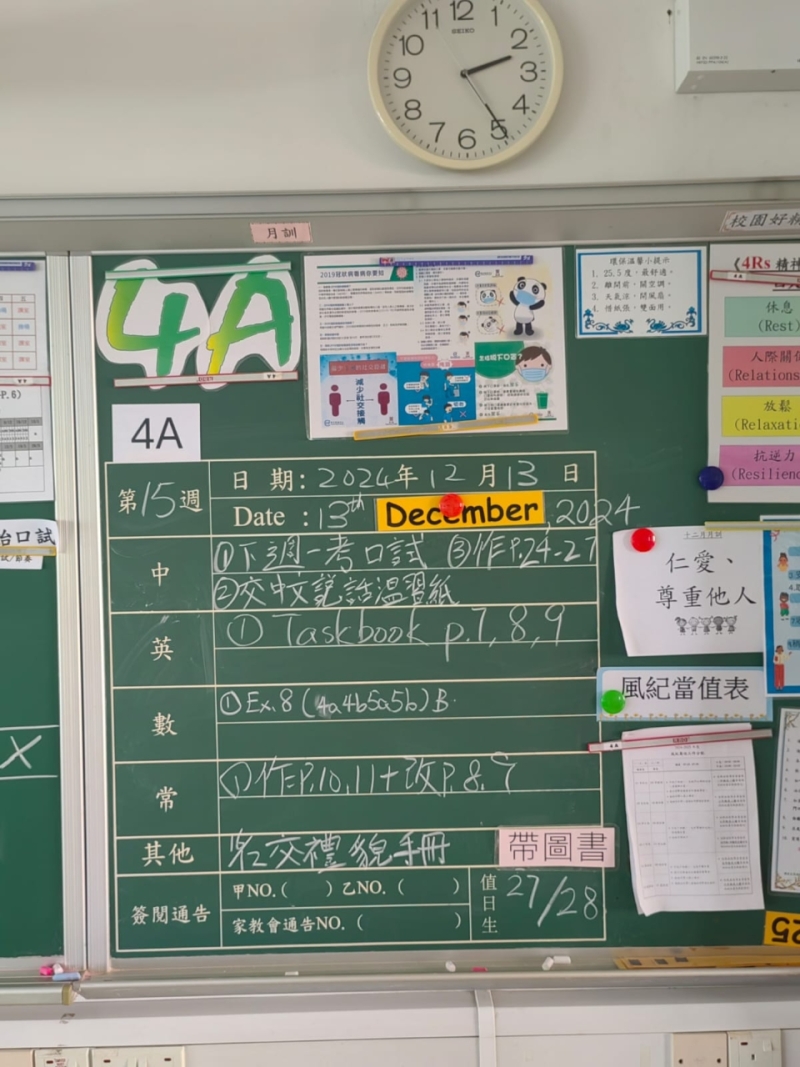 12
1
2
3
4
5
6
7
8
9
10
11
SEIKO
月訓
校園好
4A
2019冠狀病毒病你要知
減少社交接觸
環保溫馨小提示
1. 25.5度，最舒適。
2. 離開前，關空調。
3. 天氣涼，開風扇。
4. 惜紙張，雙面用。
《4Rs 精神
休息
(Rest)
人際關係
(Relations
放鬆
(Relaxatio
抗逆力
(Resilienc
P.6)
台口試
4A
第15週
日 期: 2024年 12 月 13 日
Date : 13th December, 2024
中
①下週一考口試 ③作P.24-27
②交中文說話溫習紙
英
① Taskbook p.7,8,9
數
① Ex.8 (4a4b5a5b) B.
常
①作P.10,11+改P.8,9
其他
交禮貌手冊
帶圖書
簽閱通告
甲NO.( ) 乙NO. ( )
家教會通告NO. ( )
值日生
27/28
十二月月訓
仁愛、
尊重他人
風紀當值表
X
25